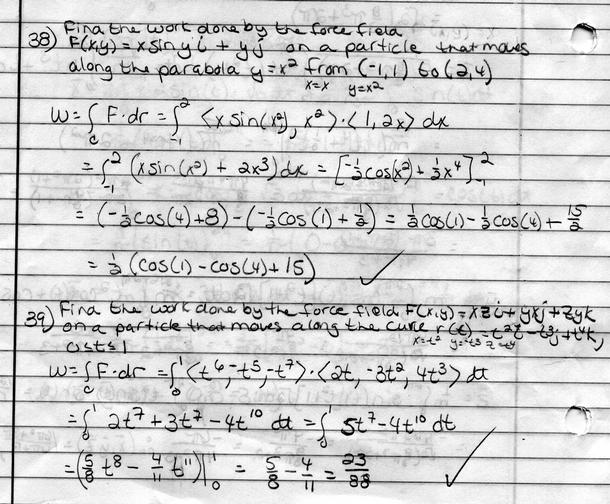 38) Find the work done by the force field
F(x,y) = x sin y i + y j on a particle that moves
along the parabola y = x² from (-1,1) to (2,4)
x=x y=x²
W = ∫_C F·dr = ∫_{-1}^{2} <x sin(x²), x²>·<1, 2x> dx
= ∫_{-1}^{2} (x sin(x²) + 2x³) dx = [-½cos(x²) + ½x⁴]_{-1}^{2}
= (-½cos(4)+8) - (-½cos(1)+½) = ½cos(1) - ½cos(4) + 15/2
= ½(cos(1) - cos(4) + 15) ✓
39) Find the work done by the force field F(x,y) = xz i + yx j + zy k
on a particle that moves along the curve r(t) = t² i - t³ j + t⁴ k,
x=t² y=-t³ z=t⁴
0≤t≤1
W = ∫_C F·dr = ∫_0^1 <t⁶, -t⁵, -t⁷>·<2t, -3t², 4t³> dt
= ∫_0^1 2t⁷ + 3t⁷ - 4t¹⁰ dt = ∫_0^1 5t⁷ - 4t¹⁰ dt
= (5/8 t⁸ - 4/11 t¹¹)|_0^1 = 5/8 - 4/11 = 23/88 ✓